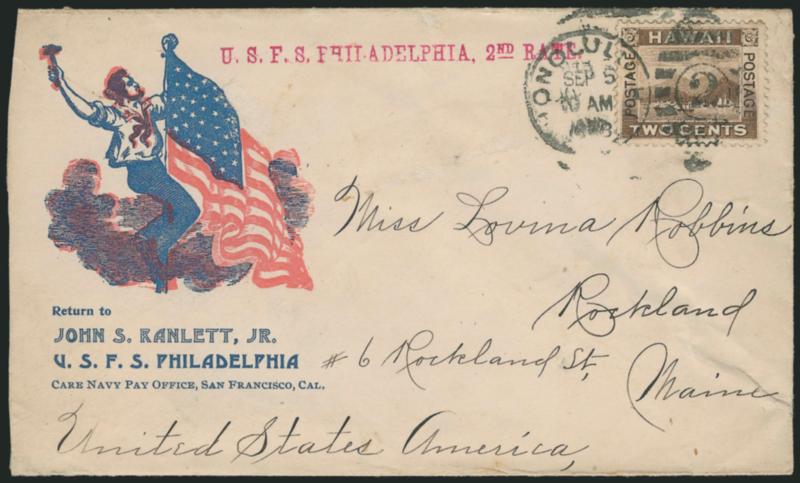 U. S. F. S. PHILADELPHIA, 2ND RATE.
HONOLULU
SEP 5
10 AM
HAWAII
POSTAGE
POSTAGE
TWO CENTS
2
Miss Lovina Robbins
Rockland
# 6 Rockland St,
Maine
United States America,
Return to
JOHN S. RANLETT, JR.
U. S. F. S. PHILADELPHIA
CARE NAVY PAY OFFICE, SAN FRANCISCO, CAL.